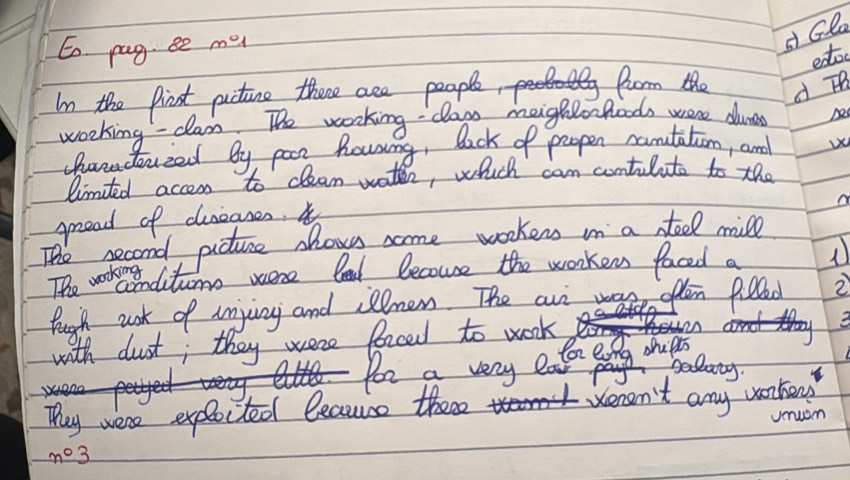 Es. pag. 82 n°1
In the first picture there are people, probally from the
working-class. The working-class neighborhoods were slums
characterized by poor housing, lack of proper sanitation, and
limited access to clean water, which can contribute to the
spread of diseases.
The second picture shows some workers in a steel mill
The working conditions were bad becouse the workers faced a
high risk of injury and illness. The air was often filled
with dust; they were forced to work long hours and they
for long shifts
were payed very little for a very low pay salary.
They were exploited because there wasn't weren't any workers'
union
n°3
5) Gla
d) Th
1)
2)
3